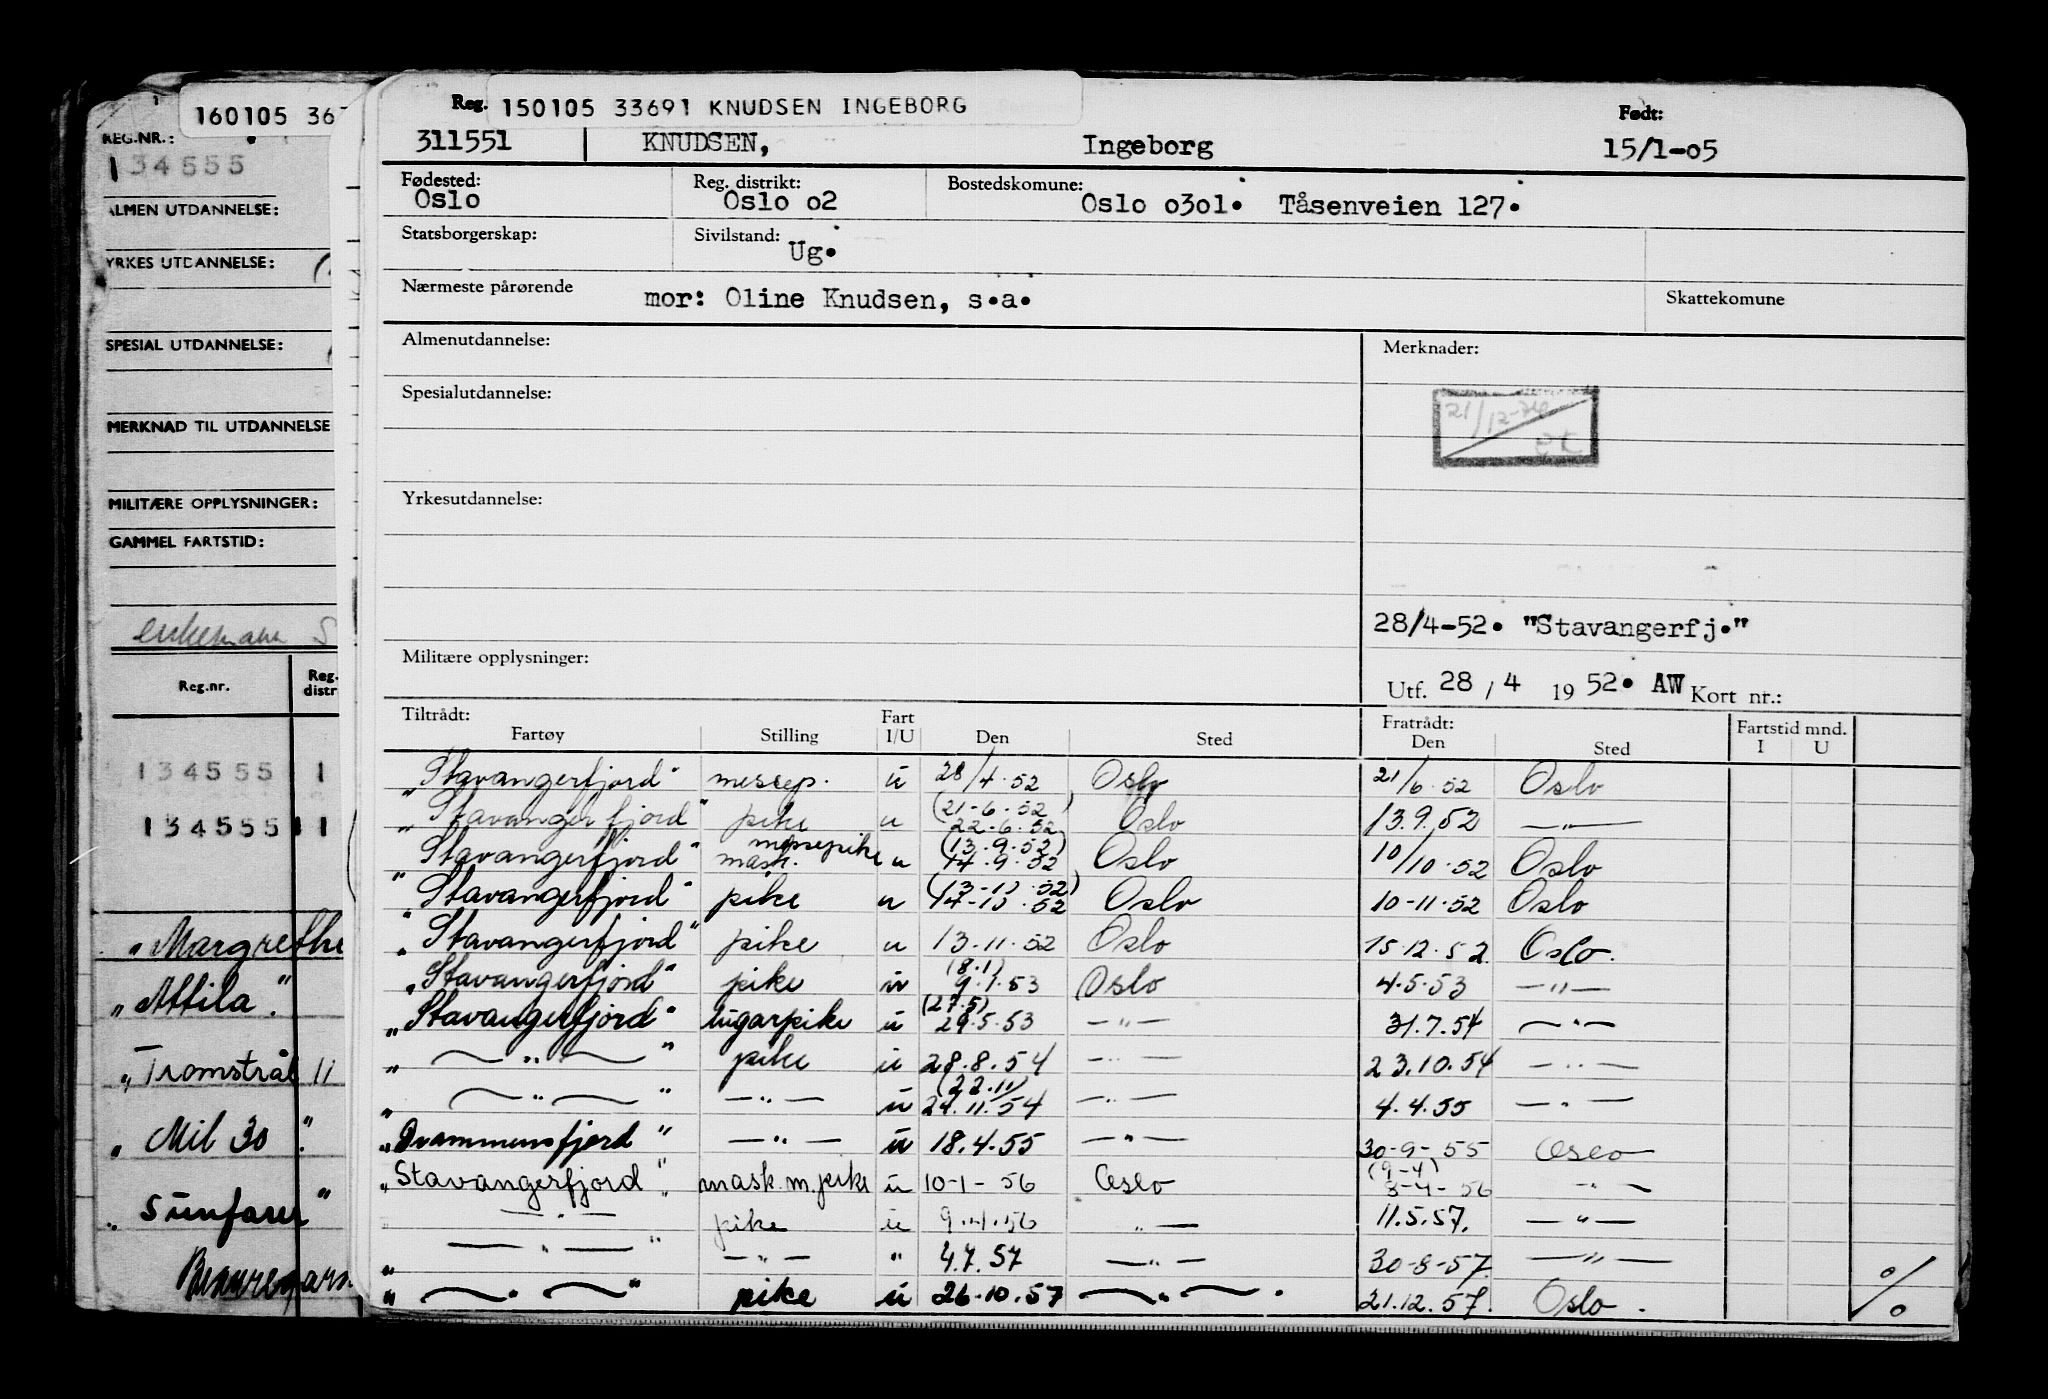 160105 36
REG.NR.:
134555
ALMEN UTDANNELSE:
YRKES UTDANNELSE:
SPESIAL UTDANNELSE:
MERKNAD TIL UTDANNELSE
MILITÆRE OPPLYSNINGER:
GAMMEL FARTSTID:
enkemann S
Reg.nr. Reg. distr
134555 1
134555 11
"Margrethe
"Attila".
"Tromstrål 11
"Mil 30".
"Sunfarer"
Reg. 150105 33691 KNUDSEN INGEBORG Født:
311551 KNUDSEN, Ingeborg 15/1-05
Fødested: Reg. distrikt: Bostedskomune:
Oslo Oslo o2 Oslo o3o1. Tåsenveien 127.
Statsborgerskap: Sivilstand: Ug.
Nærmeste pårørende mor: Oline Knudsen, s.a. Skattekomune
Almenutdannelse: Merknader:
Spesialutdannelse:
21/12-
Yrkesutdannelse:
28/4-52. "Stavangerfj."
Militære opplysninger:
Utf. 28 / 4 19 52. AW Kort nr.:
Tiltrådt: Fart Fratrådt: Fartstid mnd.
Fartøy Stilling I/U Den Sted Den Sted I U
"Stavangerfjord" messep. u 28/4.52 Oslo 21/6.52 Oslo
"Stavangerfjord" pike u (21-6.52) 22-6.52 Oslo 13.9.52 —"—
"Stavangerfjord" mask. messepike u (13.9.52) 14.9.52 Oslo 10/10.52 Oslo
"Stavangerfjord" pike u (13-10.52) 14-10.52 Oslo 10-11.52 Oslo
"Stavangerfjord" pike u 13.11.52 Oslo 15.12.52. Oslo.
"Stavangerfjord" pike u (8.1) 9.1.53 Oslo 4.5.53 —"—
"Stavangerfjord" lugarpike u (27.5) 29.5.53 —"— 31.7.54 —"—
"—"—" pike u 28.8.54 —"— 23.10.54 —"—
"—"—" —"— u (22.11) 24.11.54 —"— 4.4.55 —"—
"Drammensfjord" —"— u 18.4.55 —"— 30-9-55 Oslo
"Stavangerfjord". mask. m. pike u 10-1-56 Oslo (9-4) 3-4-56 "—
—"— pike u 9.4.56 "— 11.5.57. —"—
"—"—" —"— " 4.7.57 —"— 30-8-57. —"—
"—"—" pike u 26.10.57 —"—. 21.12.57. Oslo. %